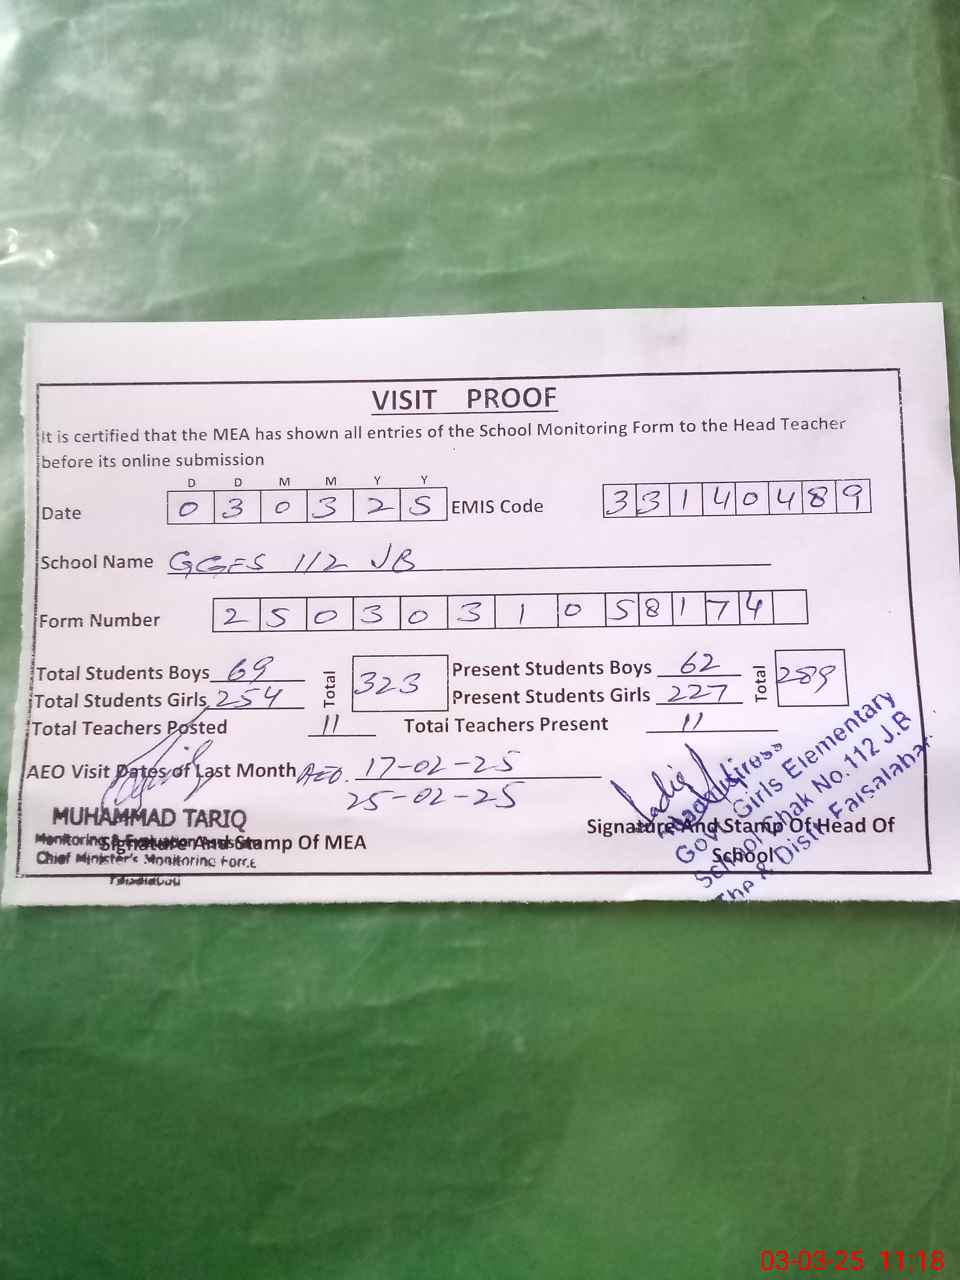 VISIT PROOF
It is certified that the MEA has shown all entries of the School Monitoring Form to the Head Teacher
before its online submission
D D M M Y Y
Date 0 3 0 3 2 5 EMIS Code 3 3 1 4 0 4 8 9
School Name GGES 112 JB
Form Number 2 5 0 3 0 3 1 0 5 8 1 7 4
Total Students Boys 69 Total 323 Present Students Boys 62 Total 289
Total Students Girls 254 Present Students Girls 227
Total Teachers Posted 11 Total Teachers Present 11
AEO Visit Dates of Last Month AEO. 17-02-25
25-02-25
MUHAMMAD TARIQ
Monitoring & Evaluation Assistant
Chief Minister's Monitoring Force
Signature And Stamp Of MEA
Signature And Stamp Of Head Of
School
Govt. Girls Elementary
School Chak No.112 J.B
The & Distt Faisalabad
03-03-25 11:18